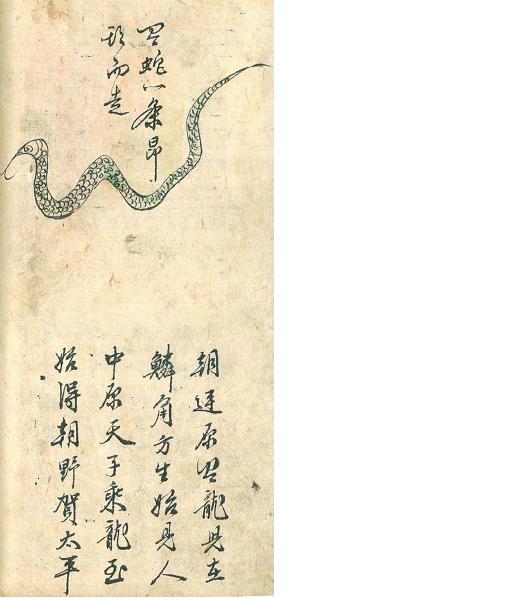 蛇一条昂
頭而走
朝廷原龍見在
鱗角方生始見人
中原天子乘龍至
始得朝野賀太平